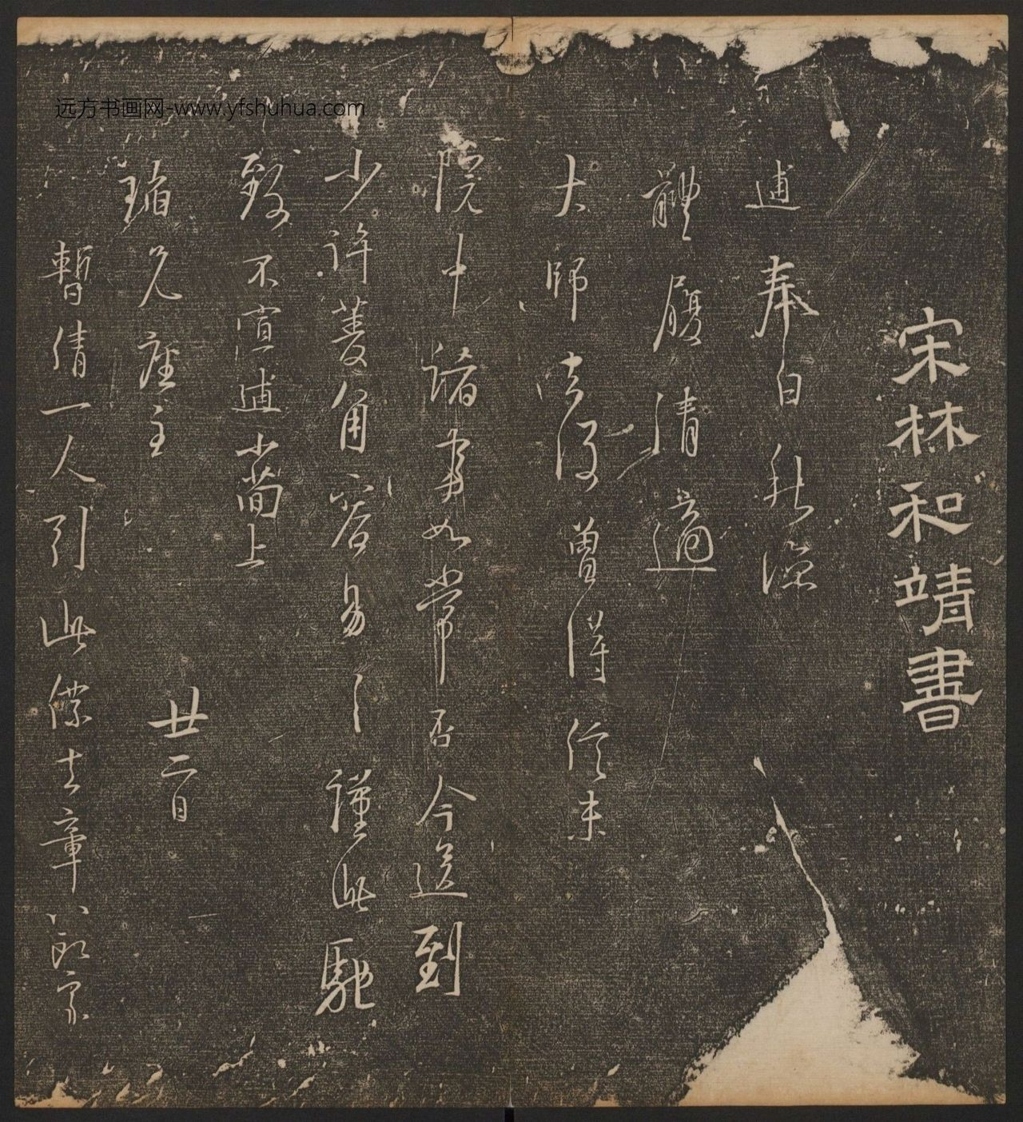 宋林和靖書
逋奉白秋深
體履清適
大師去後曾得信未
院中諸事如常否今送到
少許菱角容易〻謹此馳
致不宣逋小簡上
瑫兄座主
廿二日
暫倩一人引此僕去章八郎家
远方书画网-www.yfshuhua.com